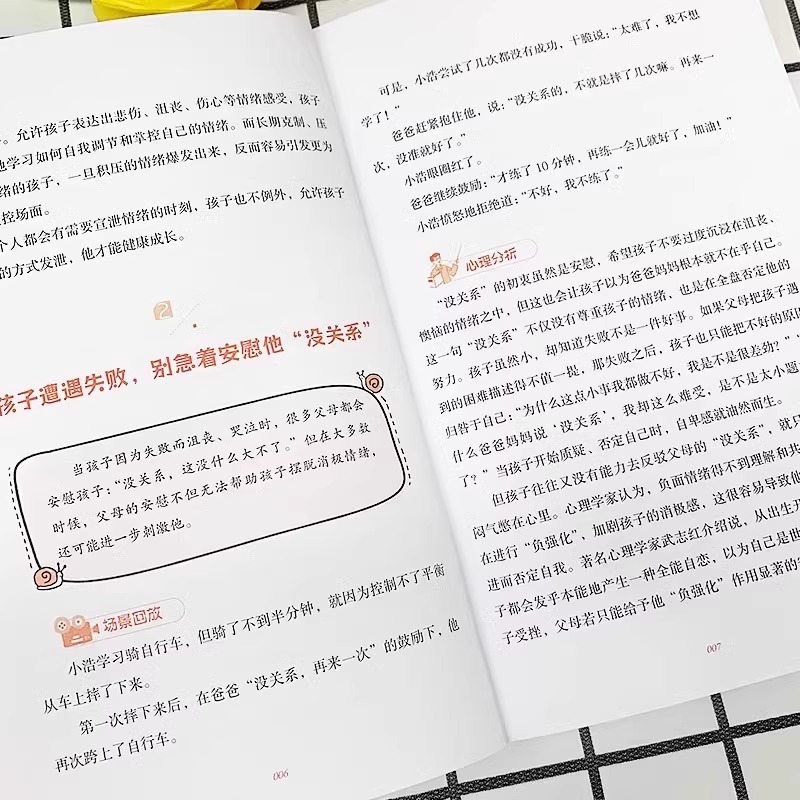 。允许孩子表达出悲伤、沮丧、伤心等情绪感受，孩子
地学习如何自我调节和掌控自己的情绪。而长期克制、压
绪的孩子，一旦积压的情绪爆发出来，反而容易引发更为
控场面。
个人都会有需要宣泄情绪的时刻，孩子也不例外，允许孩子
的方式发泄，他才能健康成长。
2
孩子遭遇失败，别急着安慰他“没关系”
当孩子因为失败而沮丧、哭泣时，很多父母都会
安慰孩子：“没关系，这没什么大不了。”但在大多数
时候，父母的安慰不但无法帮助孩子摆脱消极情绪，
还可能进一步刺激他。
场景回放
小浩学习骑自行车，但骑了不到半分钟，就因为控制不了平衡
从车上摔了下来。
第一次摔下来后，在爸爸“没关系，再来一次”的鼓励下，他
再次跨上了自行车。
006
可是，小浩尝试了几次都没有成功，干脆说：“太难了，我不想
学了！”
爸爸赶紧抱住他，说：“没关系的，不就是摔了几次嘛。再来一
次，没准就好了。”
小浩眼圈红了。
爸爸继续鼓励：“才练了10分钟，再练一会儿就好了，加油！”
小浩愤怒地拒绝道：“不好，我不练了。”
心理分析
“没关系”的初衷虽然是安慰，希望孩子不要过度沉浸在沮丧、
懊恼的情绪之中，但这也会让孩子以为爸爸妈妈根本就不在乎自己。
这一句“没关系”不仅没有尊重孩子的情绪，也是在全盘否定他的
努力。孩子虽然小，却知道失败不是一件好事。如果父母把孩子遇
到的困难描述得不值一提，那失败之后，孩子也只能把不好的原因
归咎于自己：“为什么这点小事我都做不好，我是不是很差劲？”“
什么爸爸妈妈说‘没关系’，我却这么难受，是不是太小题
了？”当孩子开始质疑、否定自己时，自卑感就油然而生。
但孩子往往又没有能力去反驳父母的“没关系”，就只
闷气憋在心里。心理学家认为，负面情绪得不到理解和共
在进行“负强化”，加剧孩子的消极感，这很容易导致他
进而否定自我。著名心理学家武志红介绍说，从出生开
子都会发乎本能地产生一种全能自恋，以为自己是世
子受挫，父母若只能给予他“负强化”作用显著的安
007